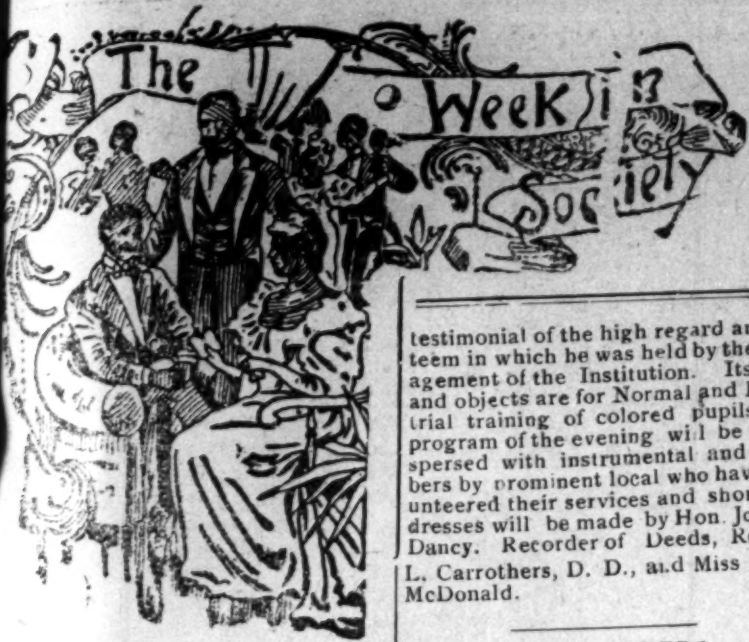 The Week in
Society
testimonial of the high regard an
teem in which he was held by the
agement of the Institution. Its
and objects are for Normal and
trial training of colored pupils
program of the evening will be
spersed with instrumental and
bers by prominent local who hav
unteered their services and shor
dresses will be made by Hon. Jo
Dancy. Recorder of Deeds, Re
L. Carrothers, D. D., and Miss
McDonald.